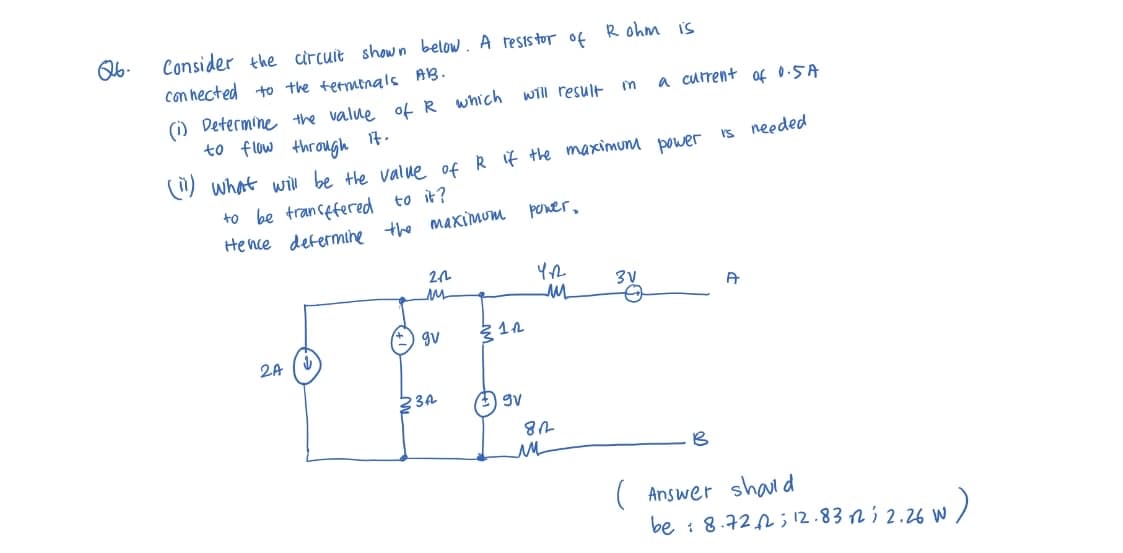 Q6. Consider the circuit shown below. A resistor of R ohm is
connected to the terminals AB.
(i) Determine the value of R which will result in a current of 0.5A
to flow through it.
(ii) what will be the value of R if the maximum power is needed
to be transffered to it?
Hence determine the maximum power.
2Ω 4Ω 3V A
+ - 9V 1Ω
2A
3Ω + - 9V
8Ω
B
( Answer should
be : 8.72Ω ; 12.83Ω ; 2.26 W )